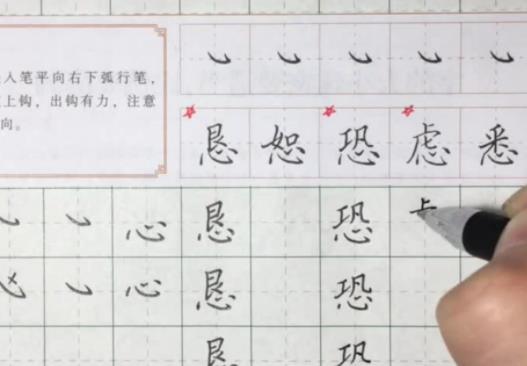 人笔平向右下弧行笔，
上钩，出钩有力，注意
向。
恳 恕 恐 虑 悉
心 恳 恐
心 恳 恐
恳 巩